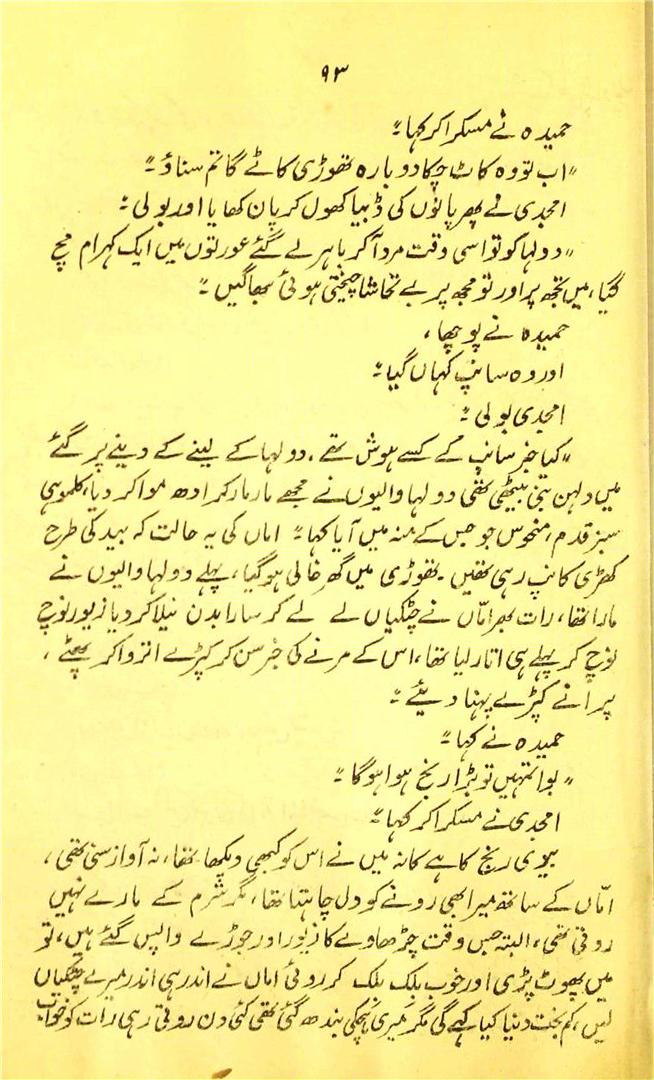 ۹۳
حمیدہ نے مسکرا کر کہا۔"
"اب تو وہ کاٹ چکا دوبارہ تھوڑی کاٹے گا تم سناؤ۔"
امجدی نے پھر پانوں کی ڈبیا کھول کر پان کھایا اور بولی۔
"دولہا کو تو اسی وقت مرد آ کر باہر لے گئے عورتوں میں ایک کہرام مچ
گیا، میں تجھ پر اور تو مجھ پر بے تحاشا چیختی ہوئی بھاگیں۔"
حمیدہ نے پوچھا،
اور وہ سانپ کہاں گیا۔
امجدی بولی۔
"کیا خبر سانپ کے کسے ہوش تھے، دولہا کے لینے کے دینے پڑ گئے
میں دلہن بنی بیٹھی تھی دولہا والیوں نے مجھے مار مار کر ادھ موا کر دیا، کلموہی
سبز قدم، منحوس جو جس کے منہ میں آیا کہا۔ اماں کی یہ حالت کہ بید کی طرح
کھڑی کانپ رہی تھیں۔ تھوڑی میں گھر خالی ہو گیا، پہلے دولہا والیوں نے
مارا تھا، رات بھر اماّں نے چٹکیاں لے لے کر سارا بدن نیلا کر دیا زیور نوچ
نوچ کر پہلے ہی اتار لیا تھا، اس کے مرنے کی خبر سن کر کپڑے اتروا کر پھٹے،
پرانے کپڑے پہنا دیئے۔
حمیدہ نے کہا۔
"بوا تمہیں تو بڑا رنج ہوا ہوگا۔"
امجدی نے مسکرا کر کہا۔"
بیوی رنج کاہے کا نہ میں نے اس کو کبھی دیکھا تھا، نہ آواز سنی تھی،
اماّں کے ساتھ میرا بھی رونے کو دل چاہتا تھا، مگر شرم کے مارے نہیں
روتی تھی، البتہ جس وقت چڑھاوے کا زیور اور جوڑے واپس گئے ہیں، تو
میں پھوٹ پڑی اور خوب بلک بلک کر روئی اماں نے اندر ہی اندر میرے چٹکیاں
لیں، کم بخت دنیا کیا کہے گی مگر میری ہچکی بندھ گئی تھی کئی دن روتی رہی رات کو خواب